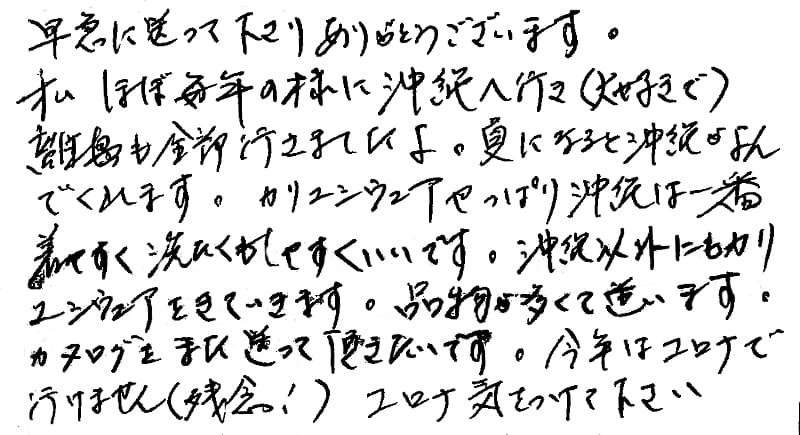 早急に送って下さりありがとうございます。
私 ほぼ毎年の様に沖縄へ行き(大好きで)
離島も全部行きましたよ。夏になると沖縄がよん
でくれます。カリユシウェアやっぱり沖縄は一番
着やすく洗たくもしやすくいいです。沖縄以外にもカリ
ユシウェアをきていきます。品物が多くて迷います。
カタログをまた送って頂きたいです。今年はコロナで
行けません(残念!) コロナ気をつけて下さい